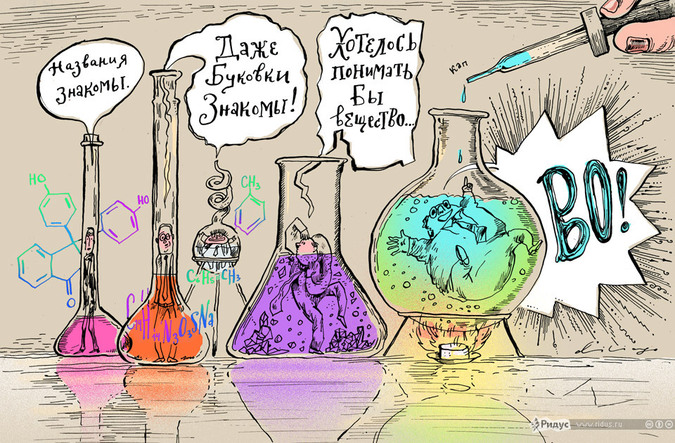 Названия
знакомы.
Даже
Буковки
Знакомы!
Хотелось
понимать
Бы
вещество...
кап
ВО!
HO
HO
O
CH₃
C₆H₅-CH₃
C₁₄H₁₄N₃O₃SNa
Ридус
www.ridus.ru